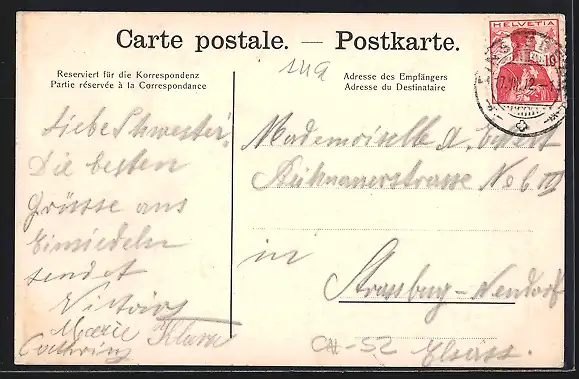 Carte postale. — Postkarte.
Reserviert für die Korrespondenz
Partie réservée à la Correspondance
Adresse des Empfängers
Adresse du Destinataire
HELVETIA
10
Liebe Schwester!
Die besten
Grüsse aus
Einsiedeln
sendet
Marie
Mademoiselle A.
No 6 III
in
Strassburg-Neudorf
Elsass.
CH-52